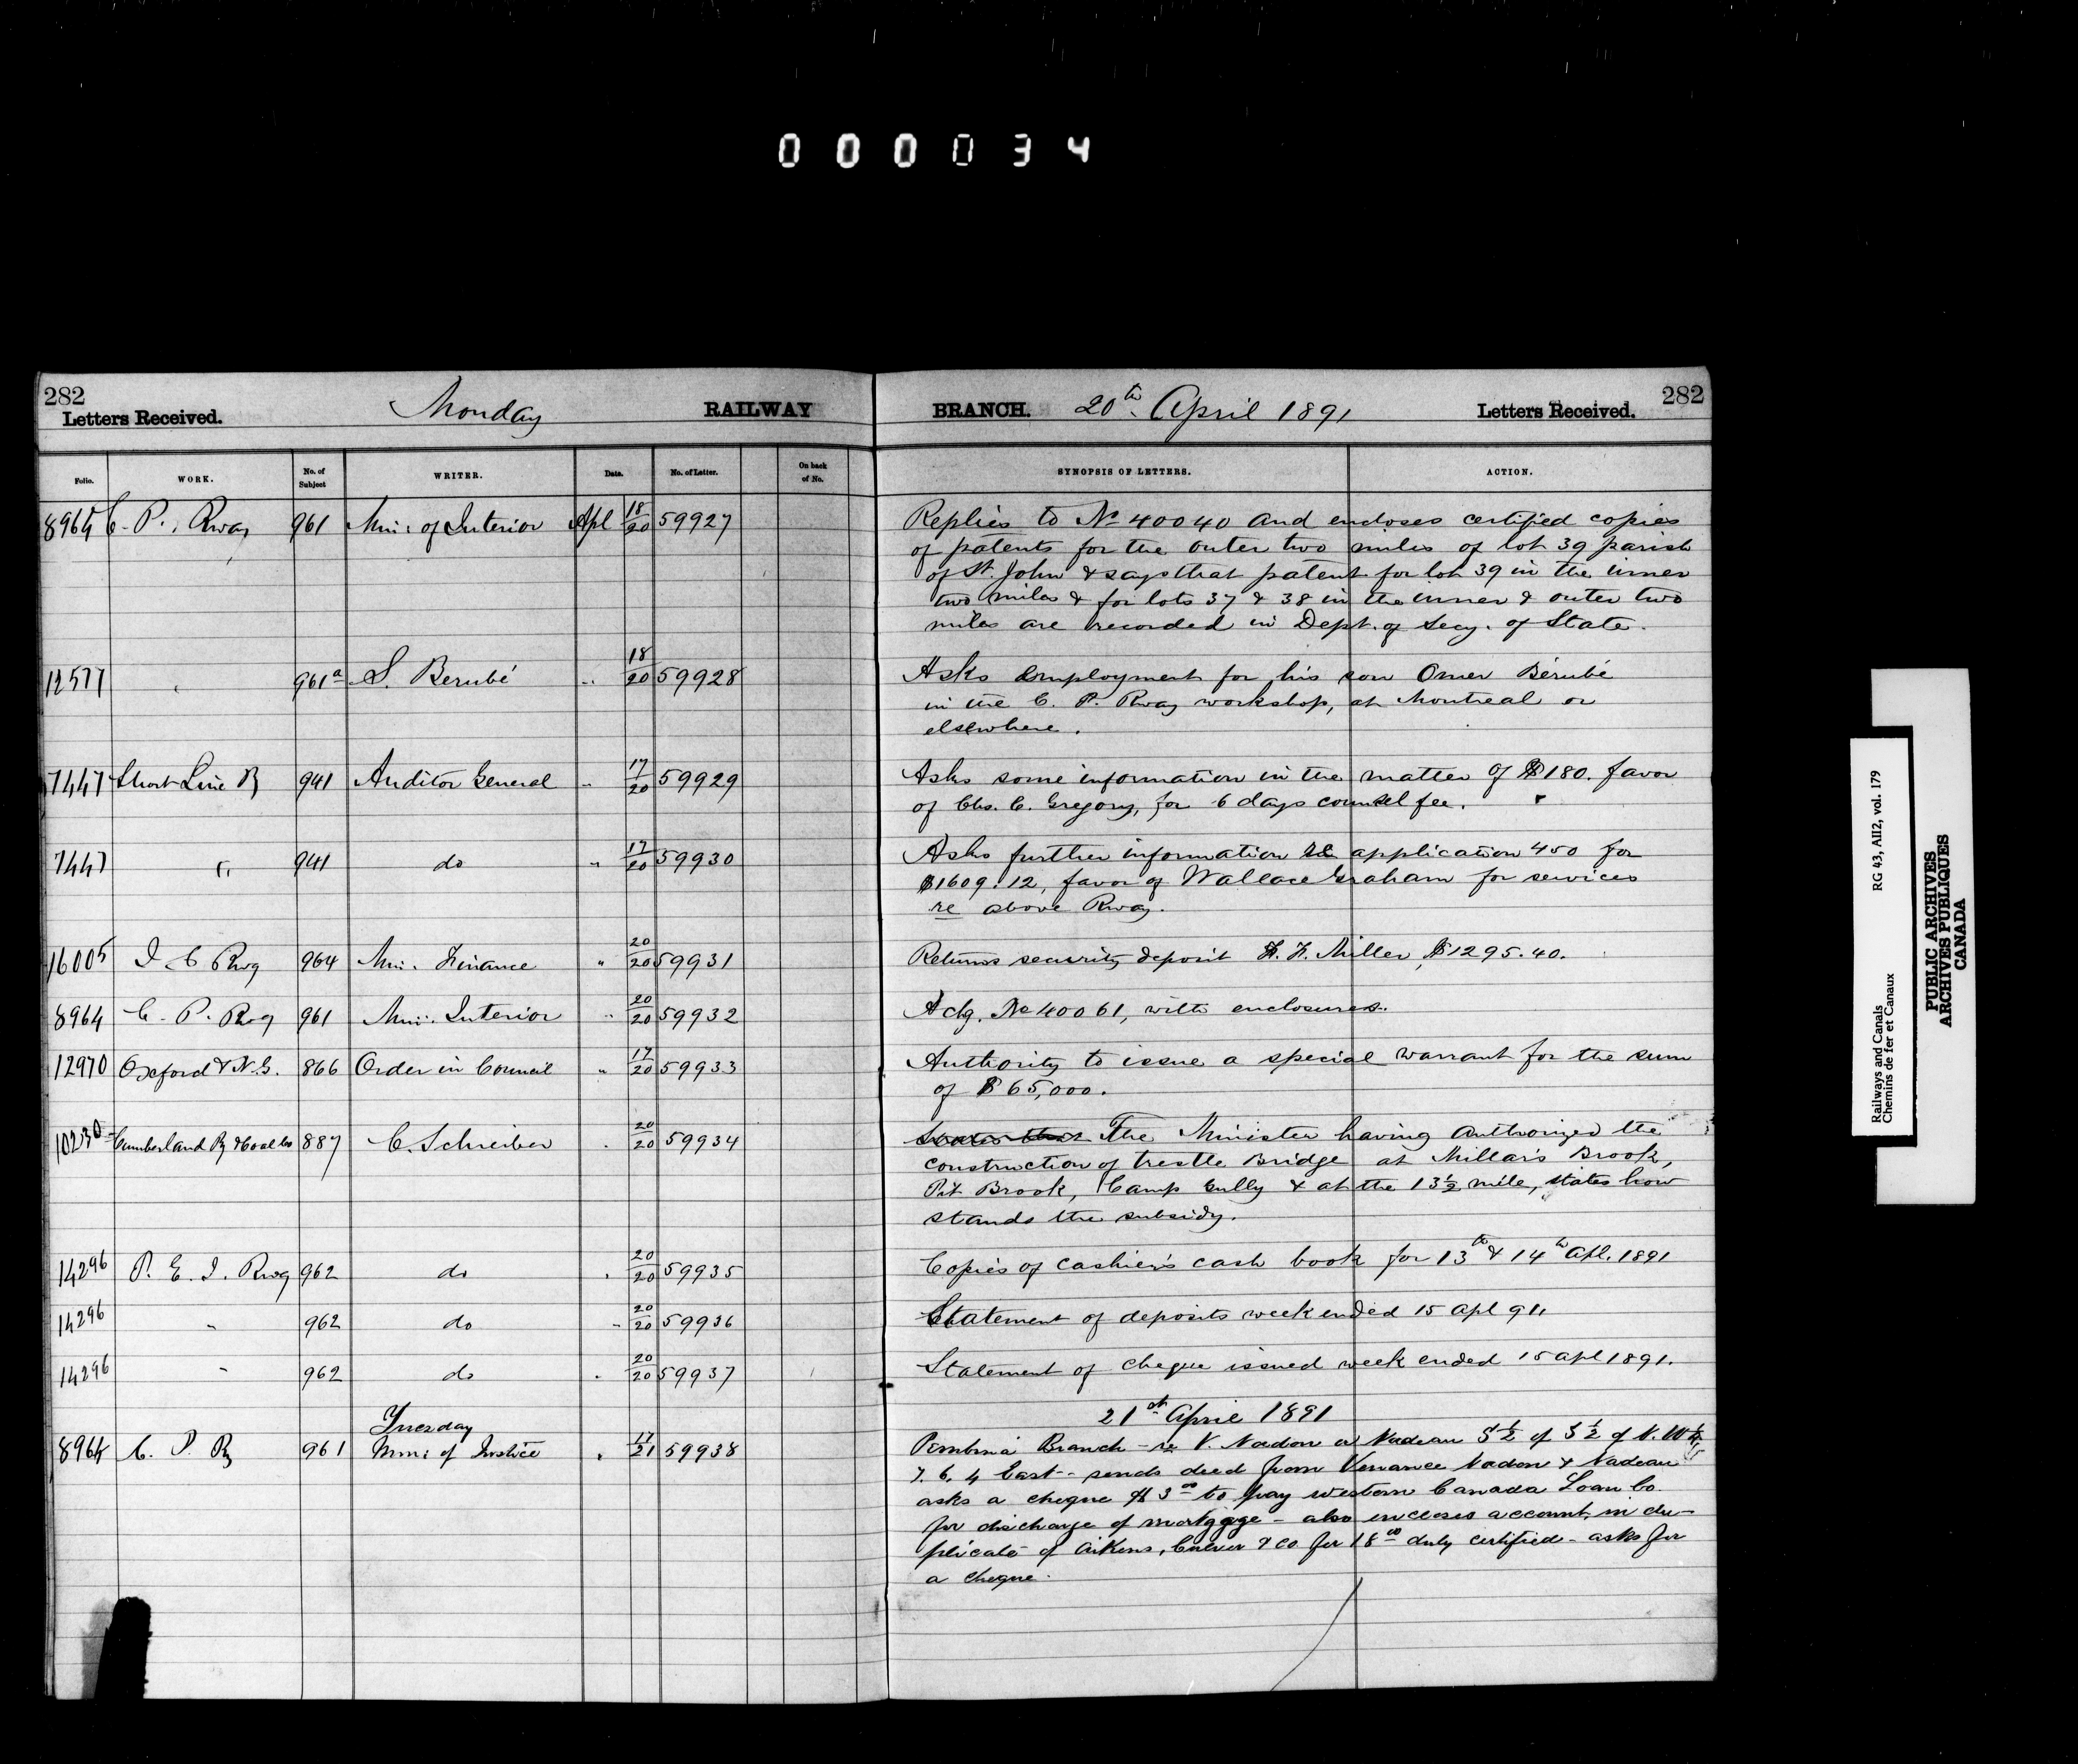 000034
282
Letters Received.
Monday
RAILWAY
BRANCH.
20th April 1891
Letters Received.
282
Folio.
WORK.
No. of Subject
WRITER.
Date.
No. of Letter.
On back of No.
SYNOPSIS OF LETTERS.
ACTION.
8964 C. P. Rway 961 Min: of Interior Apl 18/20 59927
Replies to No 40040 and encloses certified copies
of patents for the outer two miles of lot 39 parish
of St. John & says that patent for lot 39 in the inner
two miles & for lots 37 & 38 in the inner & outer two
miles are recorded in Dept. of Secy. of State.
12577 " 961a S. Berubé " 18/20 59928
Asks employment for his son Omer Bérubé
in the C. P. Rway workshop, at Montreal or
elsewhere.
7447 Short Line Ry 941 Auditor General " 17/20 59929
Asks some information in the matter of $180. favor
of Chs. C. Gregory, for 6 days counsel fee.
7447 " 941 do " 17/20 59930
Asks further information re application 450 for
$1609.12, favor of Wallace Graham for services
re above Rway.
16005 I C Rwy 964 Min. Finance " 20/20 59931
Returns security deposit H. F. Miller, $1295.40.
8964 C. P. Rwy 961 Min: Interior " 20/20 59932
Ackg. No 40061, with enclosures.
12970 Oxford & N.G. 866 Order in Council " 17/20 59933
Authority to issue a special warrant for the sum
of $65,000.
10230 Cumberland Ry & Coal Co 887 C. Schreiber " 20/20 59934
States that The Minister having authorized the
construction of trestle Bridge at Millar's Brook,
Pit Brook, Camp Gully & at the 13½ mile, states how
stands the subsidy.
14296 P. E. I. Rwy 962 do " 20/20 59935
Copies of cashier's cash book for 13th & 14th Apl. 1891
14296 " 962 do " 20/20 59936
Statement of deposits week ended 15 apl 91.
14296 " 962 do " 20/20 59937
Statement of cheque issued week ended 15 apl 1891.
Tuesday
21st April 1891
8964 C. P. Ry 961 Min: of Justice " 17/21 59938
Pembina Branch - re V. Nadon or Nadeau S½ of S½ of N.W¼
7. 6. 4 East - sends deed from Venance Nadon & Nadeau
asks a cheque $3.00 to pay western Canada Loan Co.
for discharge of mortgage - also incloses account in du-
plicate of Aikens, Culver & Co for 18.00 duly certified - asks for
a cheque.
Railways and Canals
Chemins de fer et Canaux
RG 43, AII2, vol. 179
PUBLIC ARCHIVES
ARCHIVES PUBLIQUES
CANADA